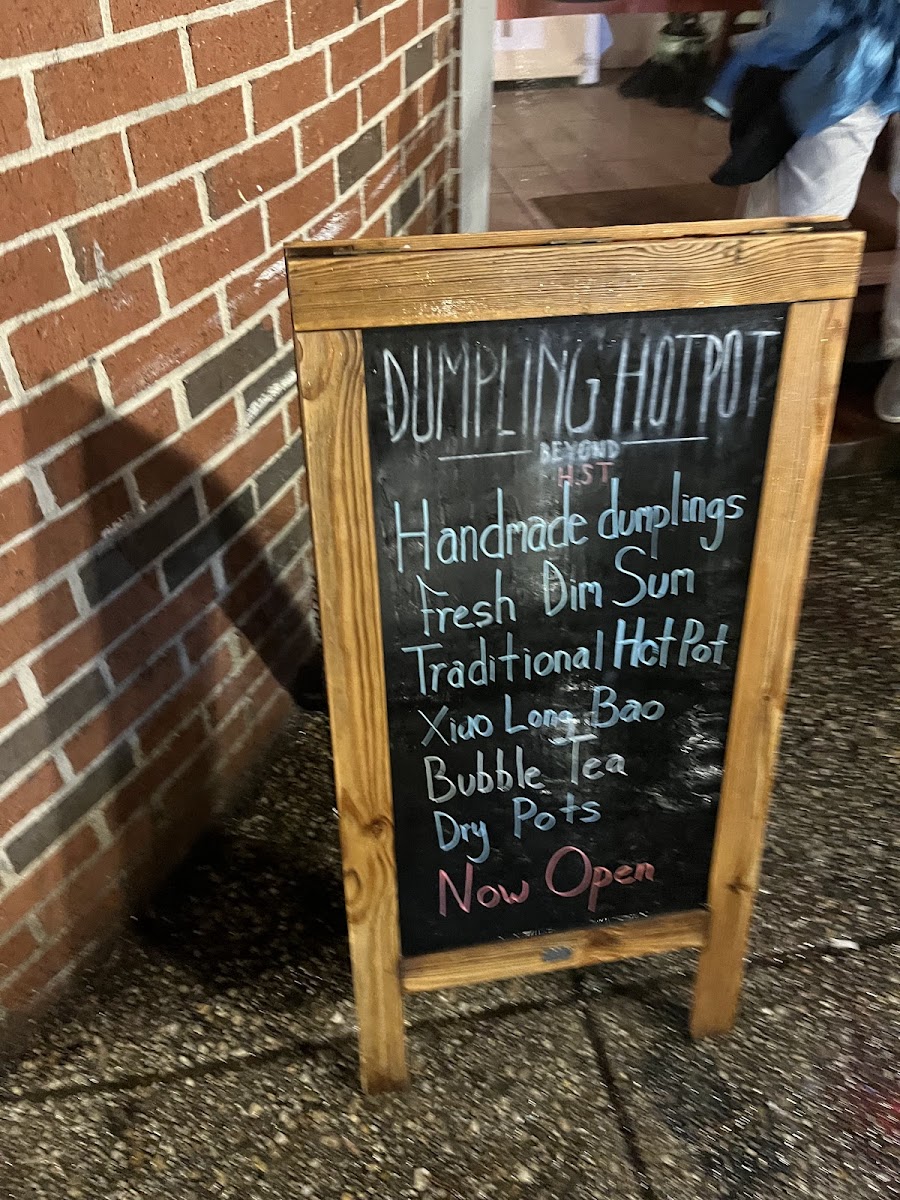 DUMPLING HOTPOT
BEYOND
H.ST
Handmade dumplings
Fresh Dim Sum
Traditional Hot Pot
Xiao Long Bao
Bubble Tea
Dry Pots
Now Open